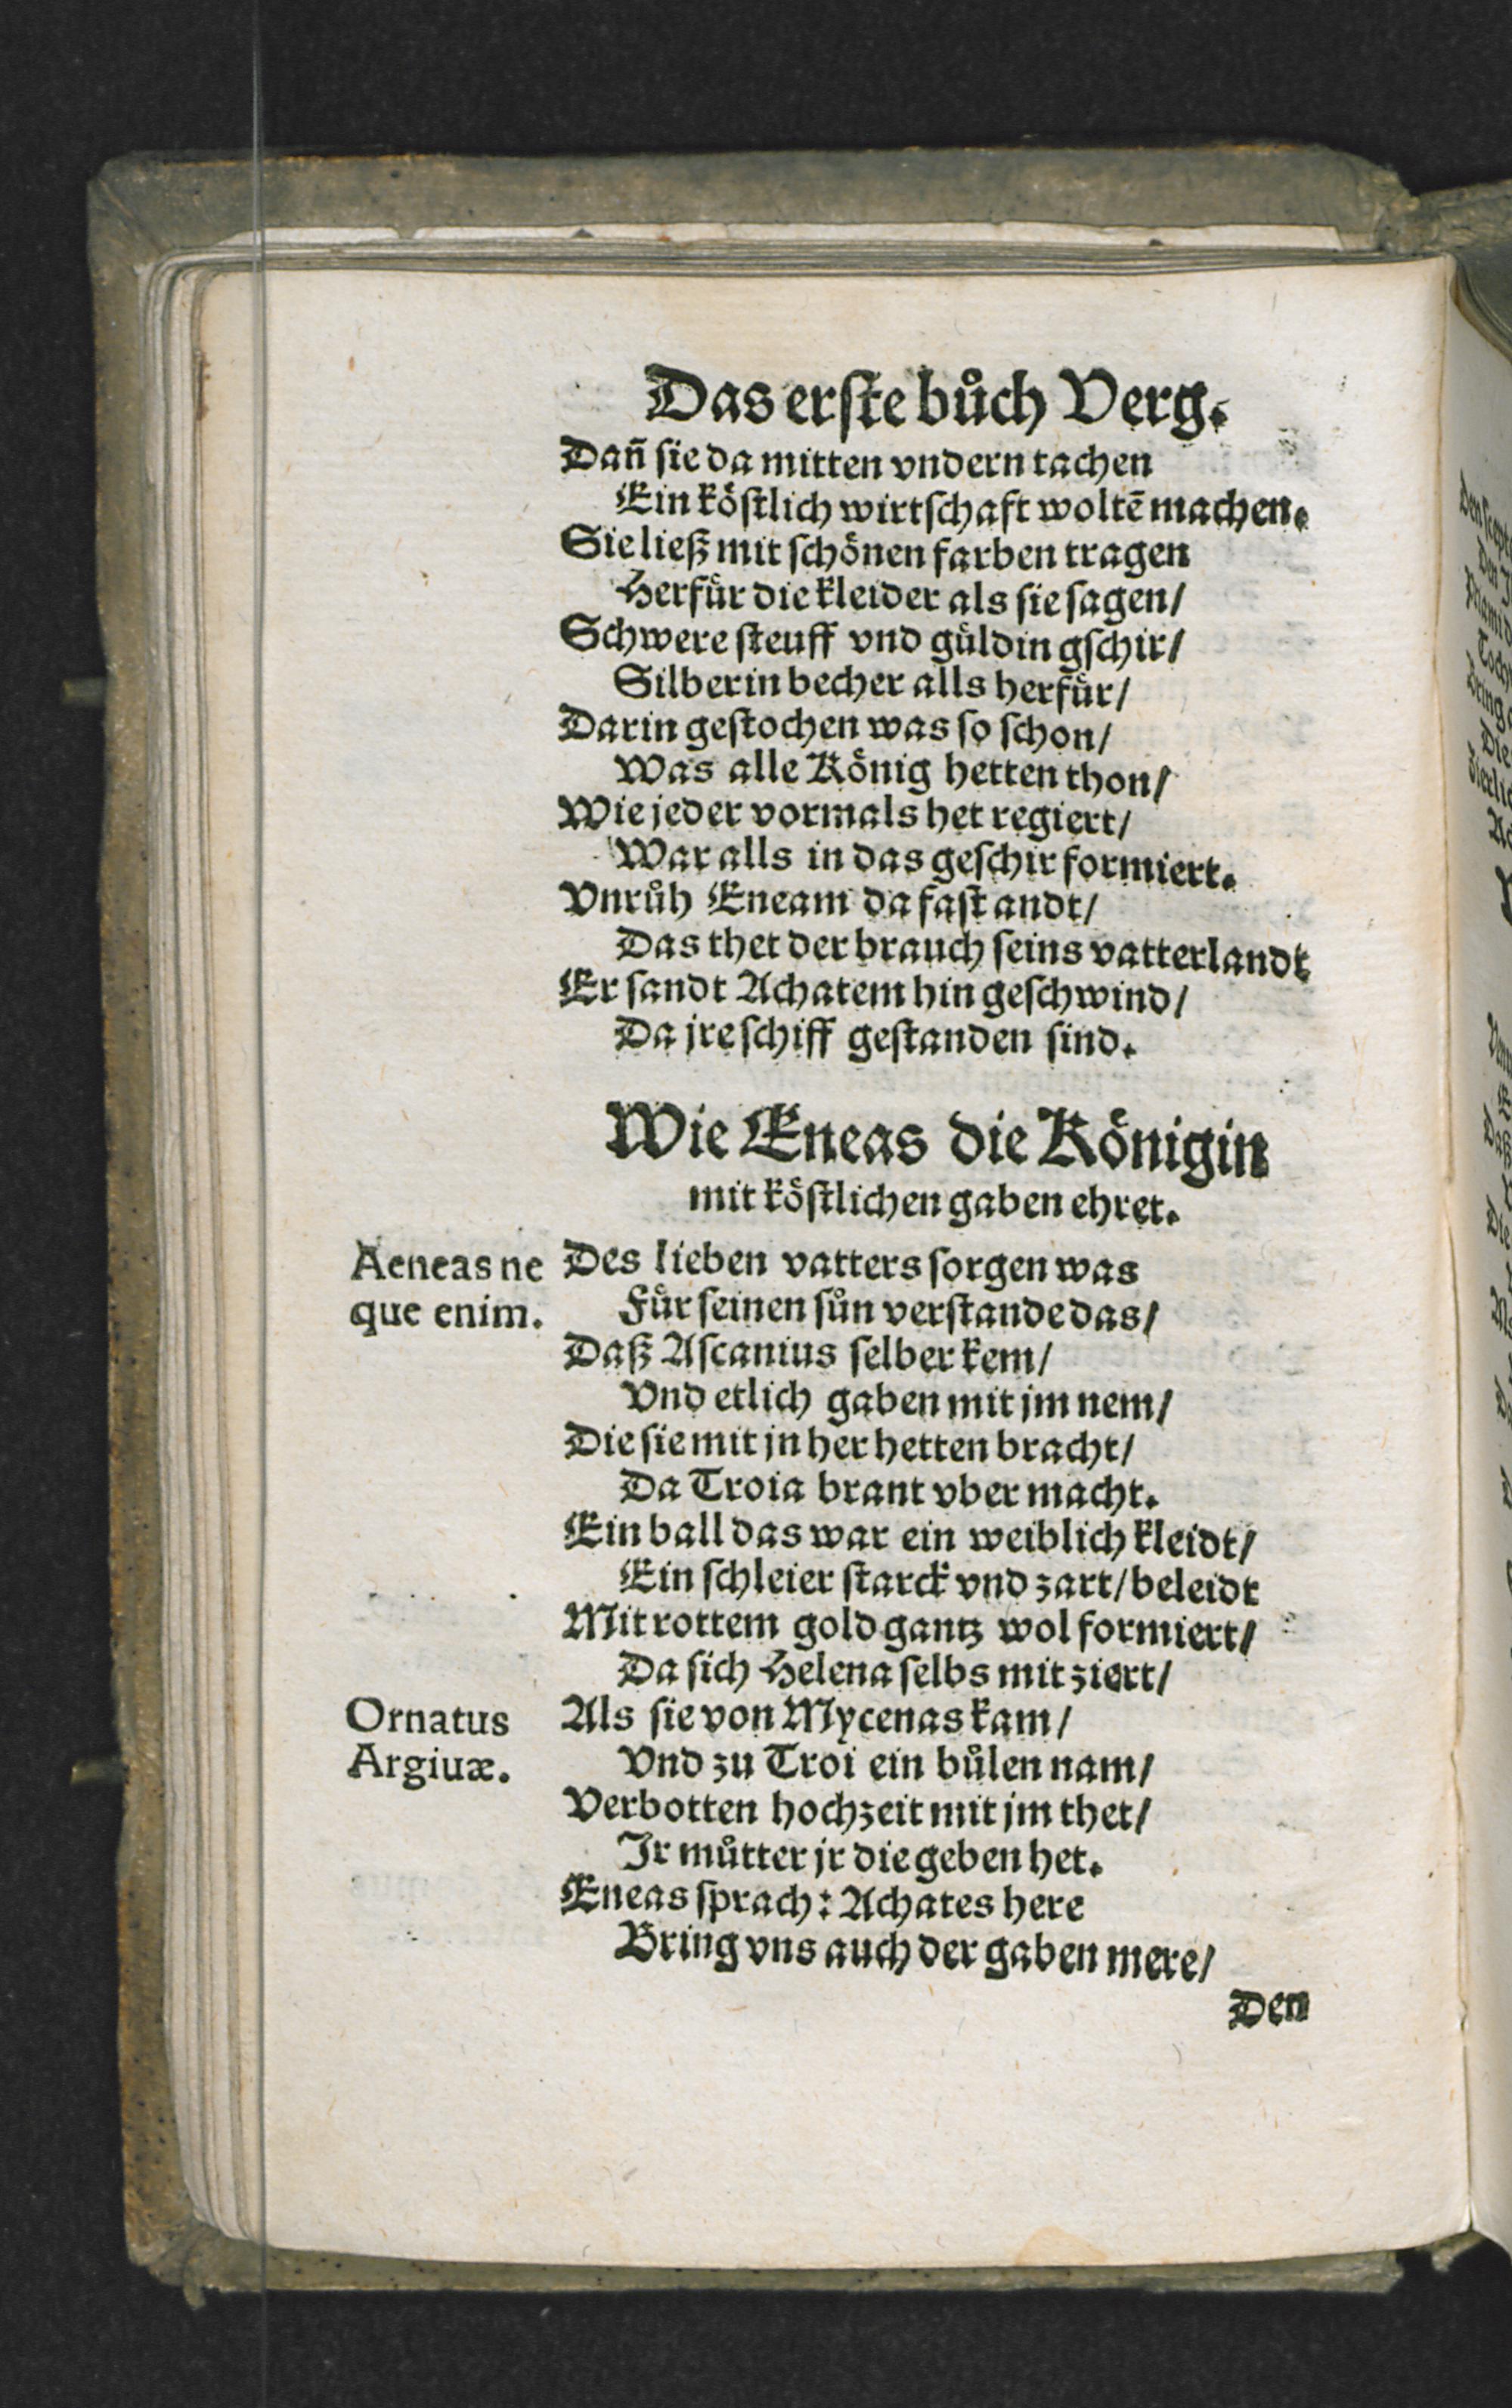 Das erste bůch Verg.
Dañ sie da mitten vndern tachen
Ein köstlich wirtschaft woltē machen.
Sie ließ mit schönen farben tragen
Herfür die kleider als sie sagen/
Schwere steuff vnd güldin gschir/
Silberin becher alls herfür/
Darin gestochen was so schon/
Was alle König hetten thon/
Wie jeder vormals het regiert/
War alls in das geschir formiert.
Vnrůh Eneam da fast andt/
Das thet der brauch seins vatterlandt
Er sandt Achatem hin geschwind/
Da jre schiff gestanden sind.
Wie Eneas die Königin
mit köstlichen gaben ehret.
Aeneas ne
que enim.
Des lieben vatters sorgen was
Für seinen sůn verstande das/
Daß Ascanius selber kem/
Vnd etlich gaben mit jm nem/
Die sie mit jn her hetten bracht/
Da Troia brant vber macht.
Ein ball das war ein weiblich kleidt/
Ein schleier starck vnd zart/beleidt
Mit rottem gold gantz wol formiert/
Da sich Helena selbs mit ziert/
Ornatus
Argiuæ.
Als sie von Mycenas kam/
Vnd zu Troi ein bůlen nam/
Verbotten hochzeit mit jm thet/
Ir můtter jr die geben het.
Eneas sprach: Achates here
Bring vns auch der gaben mere/
Den